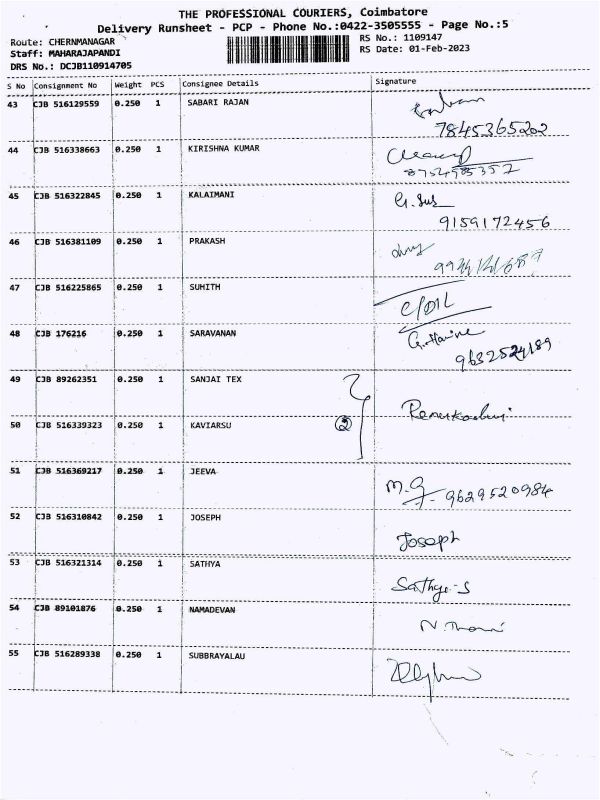 THE PROFESSIONAL COURIERS, Coimbatore
Delivery Runsheet - PCP - Phone No.:0422-3505555 - Page No.:5
Route: CHERNMANAGAR
RS No.: 1109147
Staff: MAHARAJAPANDI
RS Date: 01-Feb-2023
DRS No.: DCJB110914705
S No Consignment No Weight PCS Consignee Details Signature
43 CJB 516129559 0.250 1 SABARI RAJAN
7845365202
44 CJB 516338663 0.250 1 KIRISHNA KUMAR
8754985357
45 CJB 516322845 0.250 1 KALAIMANI G. Sus
9159172456
46 CJB 516381109 0.250 1 PRAKASH
47 CJB 516225865 0.250 1 SUHITH
48 CJB 176216 0.250 1 SARAVANAN
9632524189
49 CJB 89262351 0.250 1 SANJAI TEX
50 CJB 516339323 0.250 1 KAVIARSU 2
51 CJB 516369217 0.250 1 JEEVA
M.G 9629520984
52 CJB 516310842 0.250 1 JOSEPH
Joseph
53 CJB 516321314 0.250 1 SATHYA
Sathya-S
54 CJB 89101876 0.250 1 NAMADEVAN
55 CJB 516289338 0.250 1 SUBBRAYALAU